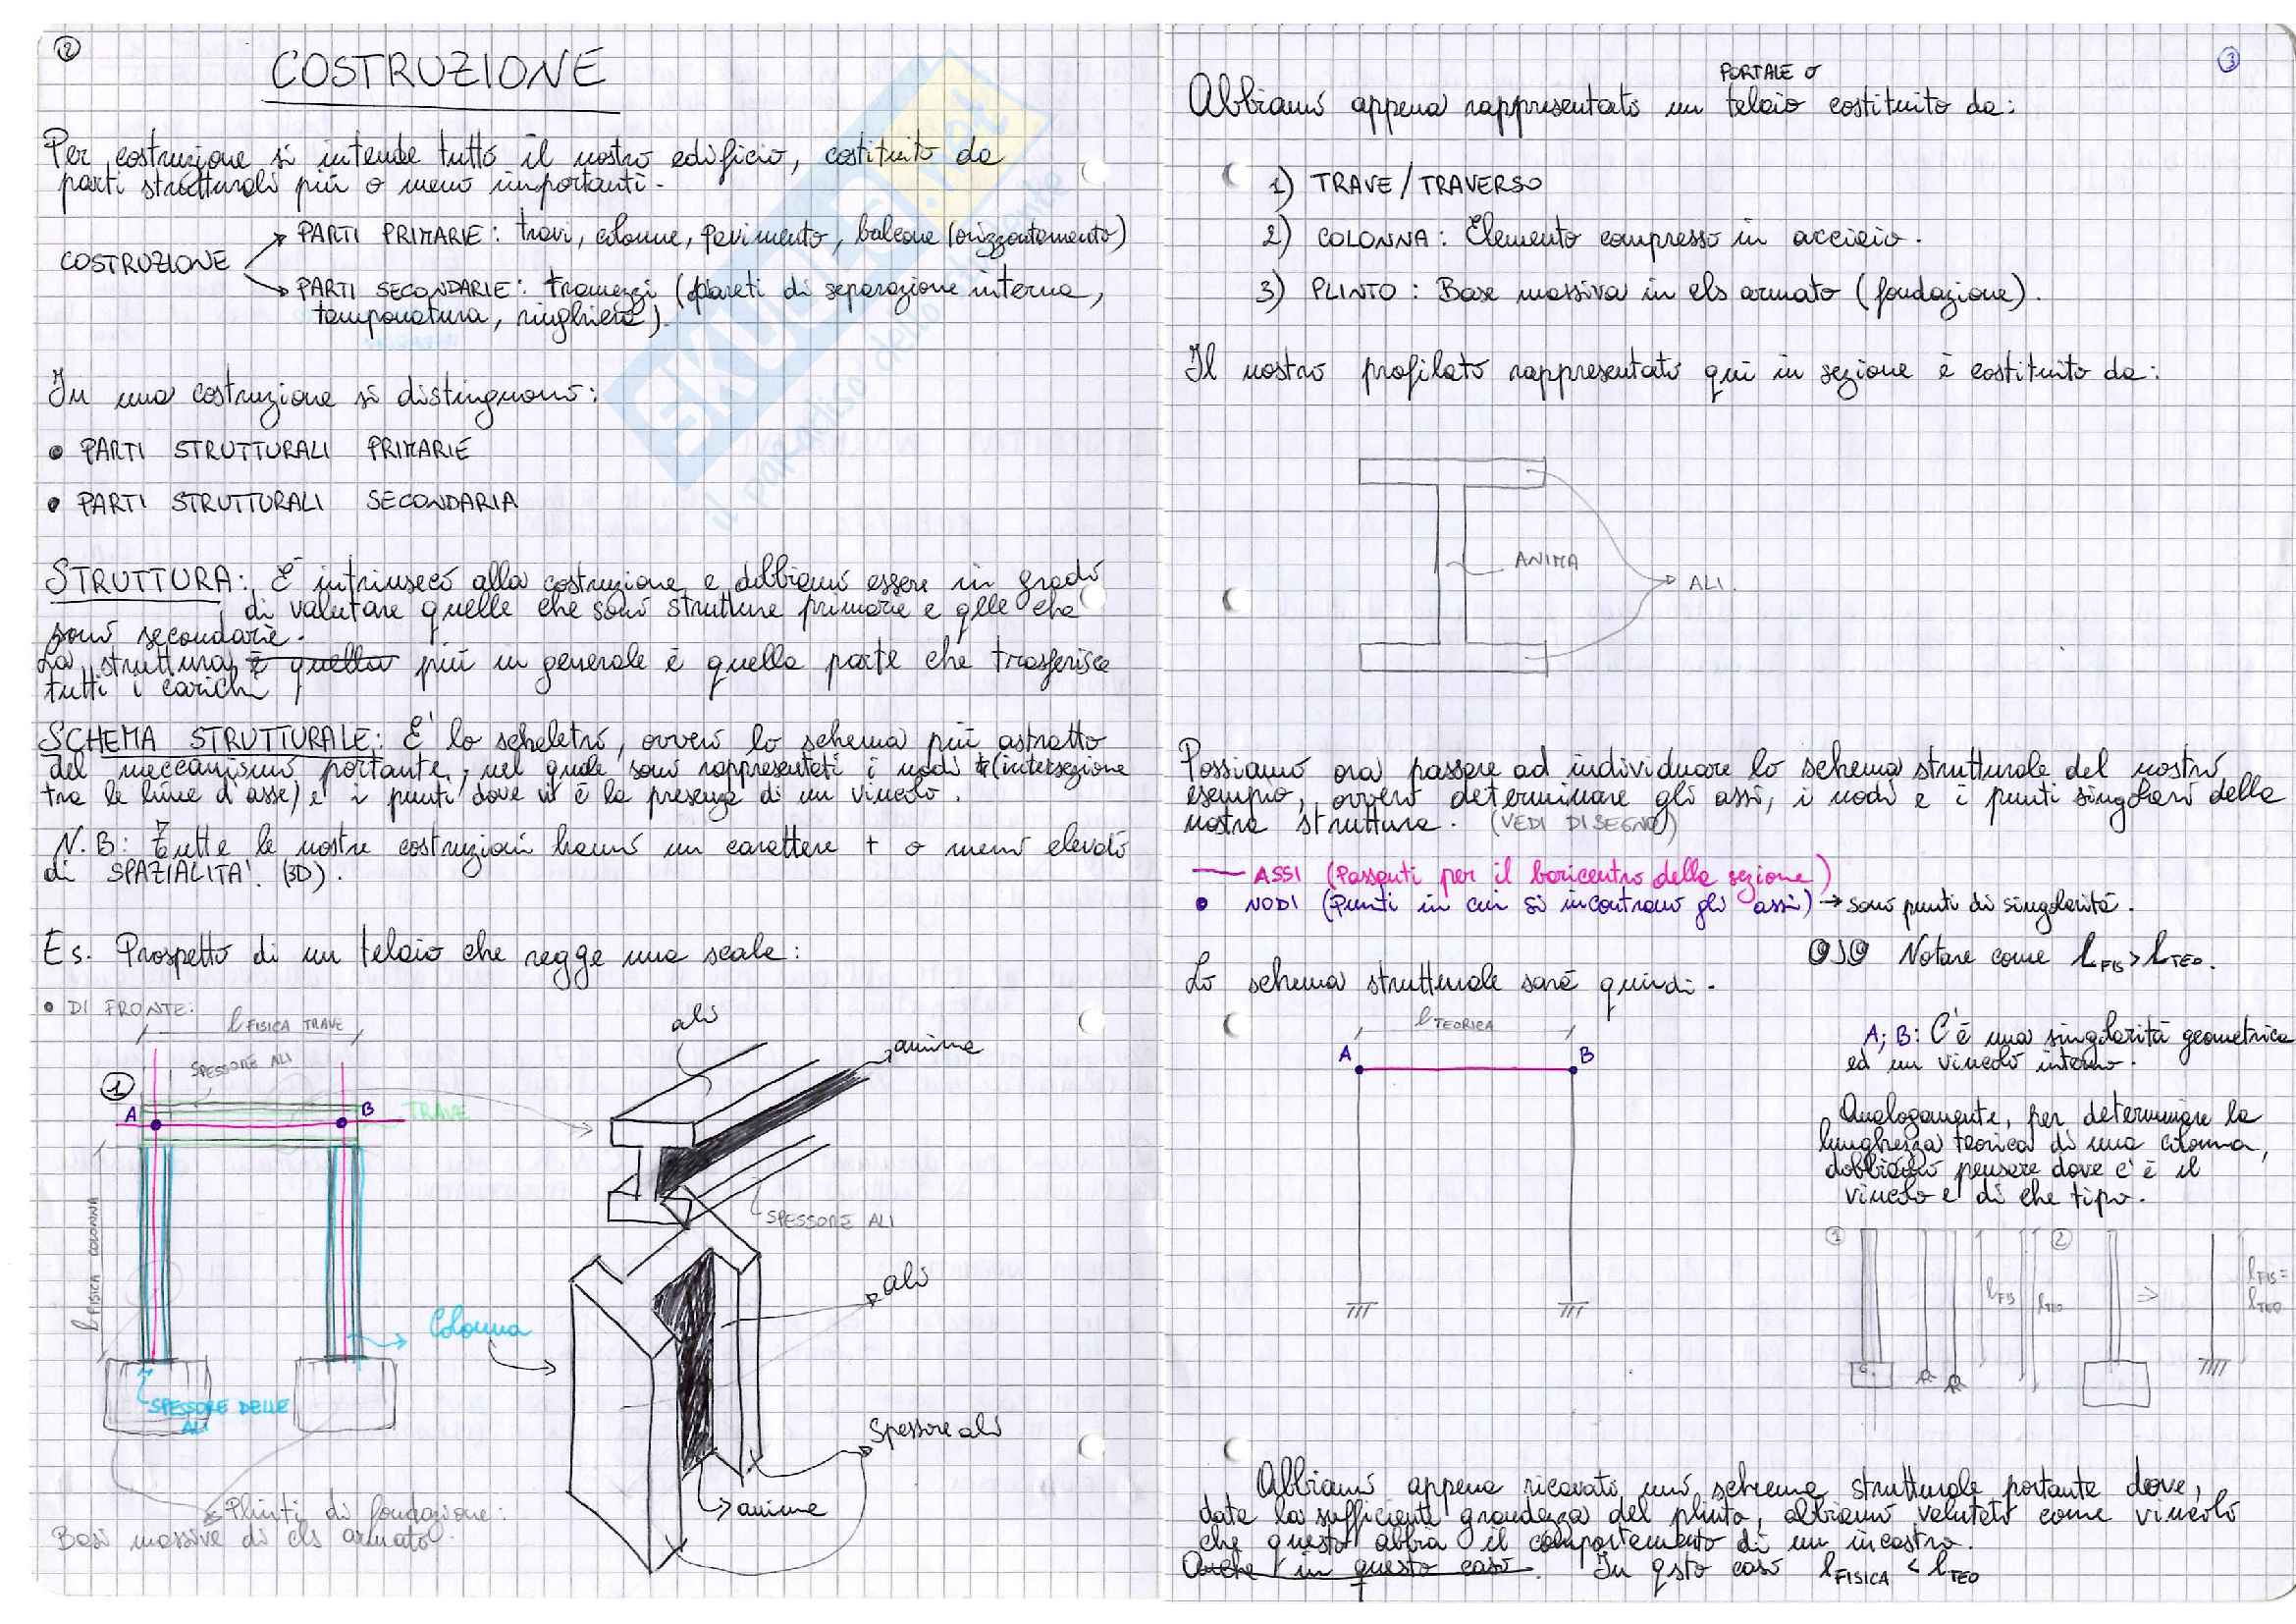 2
COSTRUZIONE
Per costruzione si intende tutto il nostro edificio, costituito da
parti strutturali più o meno importanti.
COSTRUZIONE
PARTI PRIMARIE: travi, colonne, pavimento, balcone (orizzontamento)
PARTI SECONDARIE: tramezzi (pareti di separazione interna,
tamponatura, ringhiera).
In una costruzione si distinguono:
• PARTI STRUTTURALI PRIMARIE
• PARTI STRUTTURALI SECONDARIA
STRUTTURA: È intrinseco alla costruzione e dobbiamo essere in grado
di valutare quelle che sono strutture primarie e qlle che
sono secondarie.
La struttura è quella più in generale è quella parte che trasferisce
tutti i carichi
SCHEMA STRUTTURALE: E' lo scheletro, ovvero lo schema più astratto
del meccanismo portante, nel quale sono rappresentati i nodi (intersezione
tra le linee d'asse) e i punti dove vi è la presenza di un vincolo.
N.B: Tutte le nostre costruzioni hanno un carattere + o meno elevato
di SPAZIALITA'. (3D).
Es. Prospetto di un telaio che regge una scala:
• DI FRONTE:
l FISICA TRAVE
SPESSORE ALI
1
A
B
TRAVE
l FISICA COLONNA
Colonna
SPESSORE DELLE
ALI
Plinti di fondazione:
Basi massive di cls armato.
ali
anima
SPESSORE ALI
ali
Spessore ali
anima
SKUOLA.net
il paradiso dello studente
3
PORTALE o
Abbiamo appena rappresentato un telaio costituito da:
1) TRAVE/TRAVERSO
2) COLONNA: Elemento compresso in acciaio.
3) PLINTO: Base massiva in cls armato (fondazione).
Il nostro profilato rappresentato qui in sezione è costituito da:
ANIMA
ALI.
Possiamo ora passare ad individuare lo schema strutturale del nostro
esempio, ovvero determinare gli assi, i nodi e i punti singolari della
nostra struttura. (VEDI DISEGNO)
ASSI (Passanti per il baricentro della sezione)
• NODI (Punti in cui si incontrano gli assi) → sono punti di singolarità.
OJO Notare come l FIS > l TEO.
Lo schema strutturale sarà quindi.
l TEORICA
A
B
A; B: C'è una singolarità geometrica
ed un vincolo interno.
Analogamente, per determinare la
lunghezza teorica di una colonna,
dobbiamo pensare dove c'è il
vincolo e di che tipo.
1
G
l FIS
l TEO
2
=>
l FIS =
l TEO
Abbiamo appena ricavato uno schema strutturale portante dove,
data la sufficiente grandezza del plinto, abbiamo valutato come vincolo
che questo abbia il comportamento di un incastro.
Anche in questo caso. In qsto caso l FISICA < l TEO